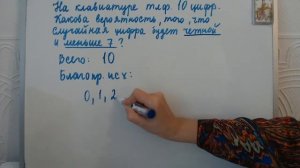 На клавиатуре тлф. 10 цифр.
Какова вероятность, того, что
случайная цифра будет четной
и меньше 7?
Всего: 10
Благопр. исх:
0, 1, 2